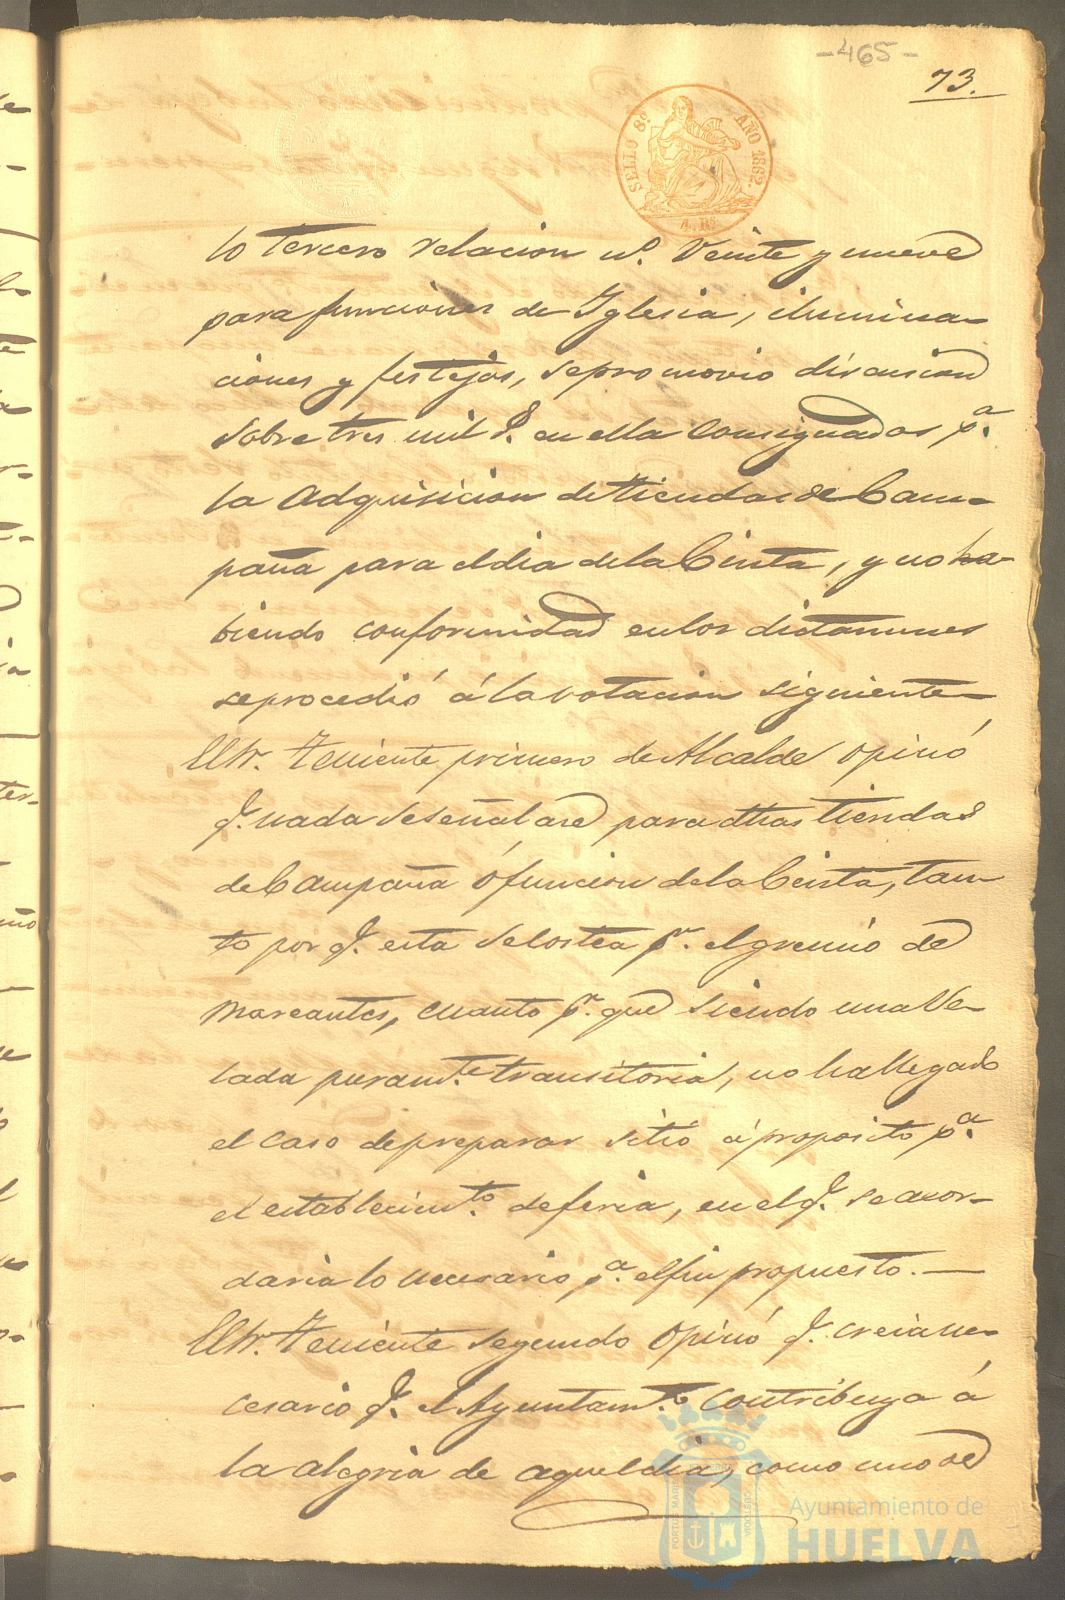 -465-
73.
SELLO 8º AÑO 1862.
4 Rs
lo tercero relacion nº. Veinte y nueve
para funciones de Iglesia, ilumina-
ciones y festejos, se promovio discusion
sobre tres mil r. en ella consignados pª.
la adquisicion de tiendas de Cam-
paña para el dia de la Cinta, y no ha-
biendo conformidad en los dictamenes
se procedió á la votacion siguiente
El Sr. Teniente primero de Alcalde opinó
q. nada se señalase para dhas tiendas
de Campaña ó funcion de la Cinta, tan-
to por q. esta se costea pr. el gremio de
mareantes, cuanto pr. que siendo una Ve-
lada puramte. transitoria, no ha llegado
el caso de preparar sitio á proposito pª.
el establecimto. de feria, en el q. se acor-
daria lo necesario pª. el fin propuesto.—
El Sr. Teniente segundo opinó q. creia ne-
cesario q. el Ayuntamto. contribuya á
la alegria de aquel dia, como uno de
Ayuntamiento de
HUELVA